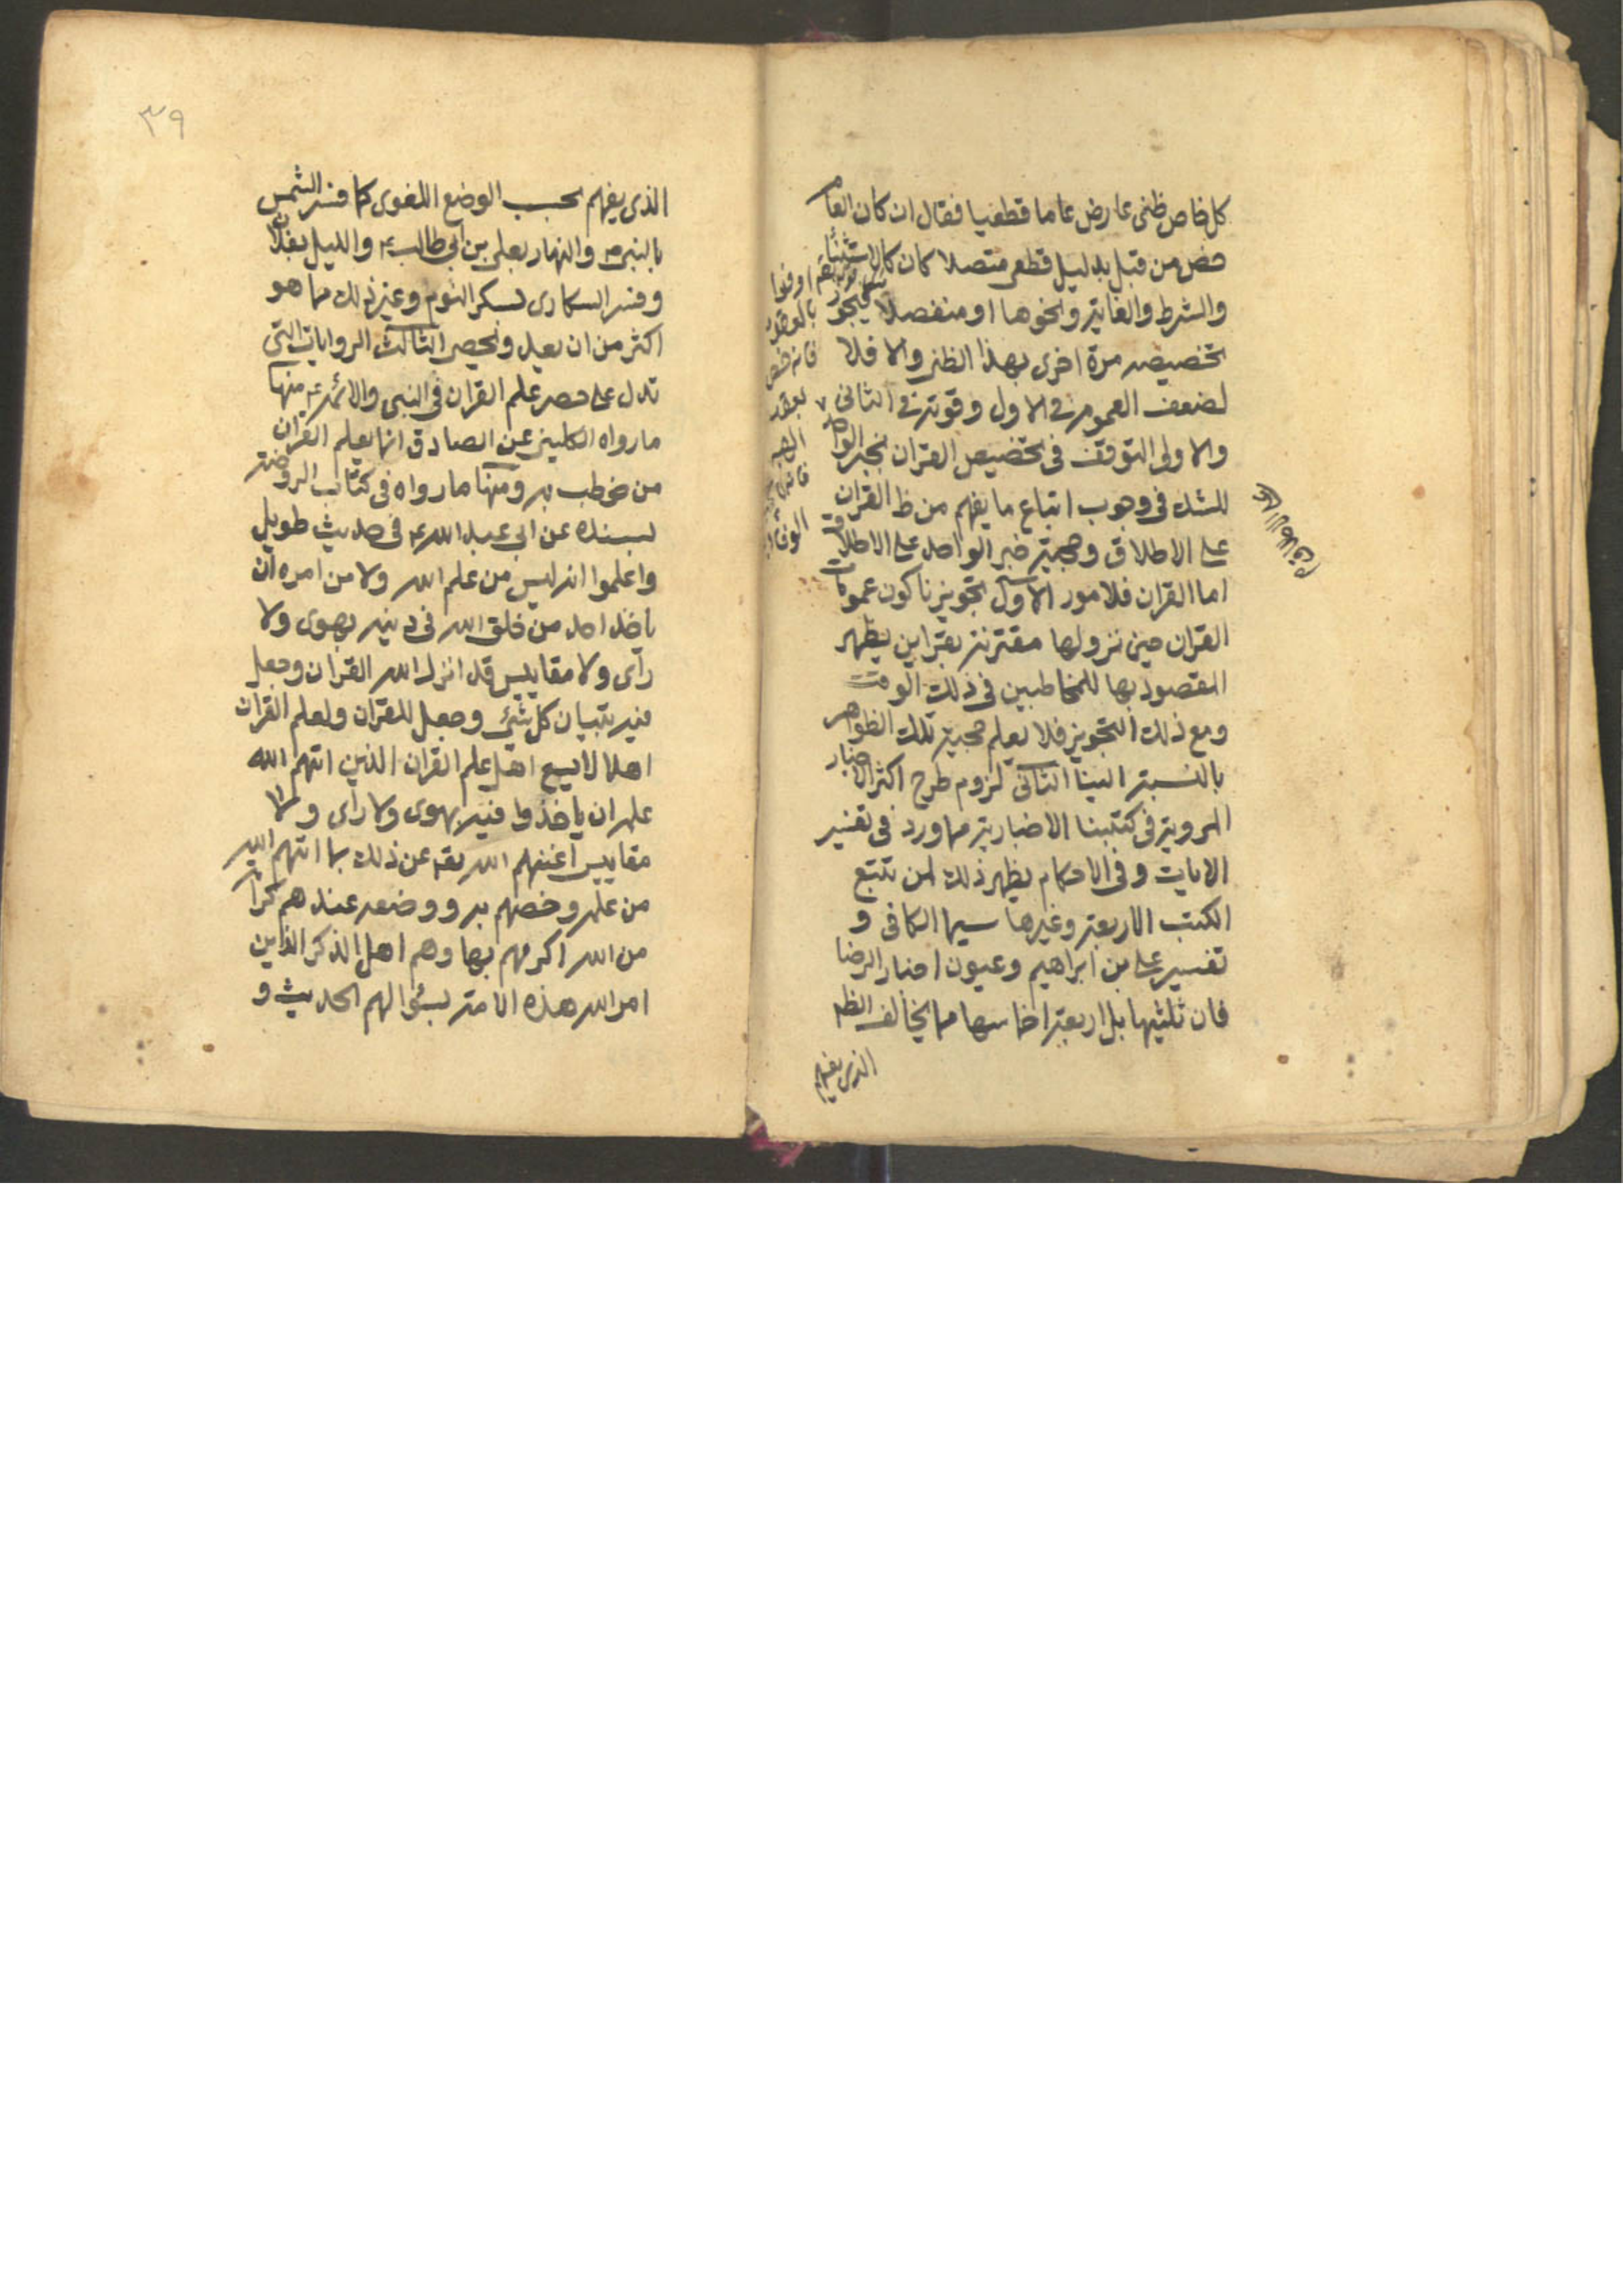 كل خاص ظنى عارض عاما قطعيا فقال ان كان العام
خص من قبل بدليل قطعى متصلا كان كالاستثناء
والشرط والغاية ونحوها او منفصلا فيجوز
تخصيصه مرة اخرى بهذا الظنى والا فلا
لضعف العموم فى الاول وقوته فى الثانى
والاولى التوقف فى تخصيص القران بخبر الواحد
للشك فى وجوب اتباع ما يفهم من ظ القران
على الاطلاق وحجية خبر الواحد على الاطلاق
اما القران فلامور الاول تجويزنا كون عمومات
القران حين نزولها مقترنة بقراين يظهر
المقصود بها للمخاطبين فى ذلك الوقت
ومع ذلك التجويز فلا يعلم حجية تلك الظواهر
بالنسبة الينا الثانى لزوم طرح اكثر الاخبار
المروية فى كتبنا الاخبارية مما ورد فى تفسير
الايات وفى الاحكام يظهر ذلك لمن تتبع
الكتب الاربعة وغيرها سيما الكافى و
تفسير على بن ابراهيم وعيون اخبار الرضا
فان ثلثيها بل اربعة اخماسها مما يخالف الظ
الذى يفهم
اوفوا
بالعقود
فانه خص
بعقد
٣٩
الذى يفهم بحسب الوضع اللغوى كما فسر الشمس
بالنبى ص والنهار بعلى بن ابى طالب ع والليل بفلان
وفسر السكارى بسكر النوم وغير ذلك مما هو
اكثر من ان يعد ويحصر الثالث الروايات التى
تدل على حصر علم القران فى النبى والائمة ع منها
ما رواه الكلينى عن الصادق انما يعلم القران
من خوطب به ومنها ما رواه فى كتاب الروضة
بسنده عن ابى عبد الله ع فى حديث طويل
واعلموا انه ليس من علم الله ولا من امره ان
ياخذ احد من خلق الله فى دينه بهوى ولا
راى ولا مقاييس قد انزل الله القران وجعل
فيه تبيان كل شئ وجعل للقران ولعلم القران
اهلا لا يسع اهل علم القران الذين اتهم الله
علمه ان ياخذوا فيه بهوى ولا راى ولا
مقاييس اغنهم الله تعه عن ذلك بما اتهم الله
من علمه وخصهم به ووضعه عندهم كرامة
من الله اكرمهم بها وهم اهل الذكر الذين
امر الله هذه الامة بسؤالهم الحديث و